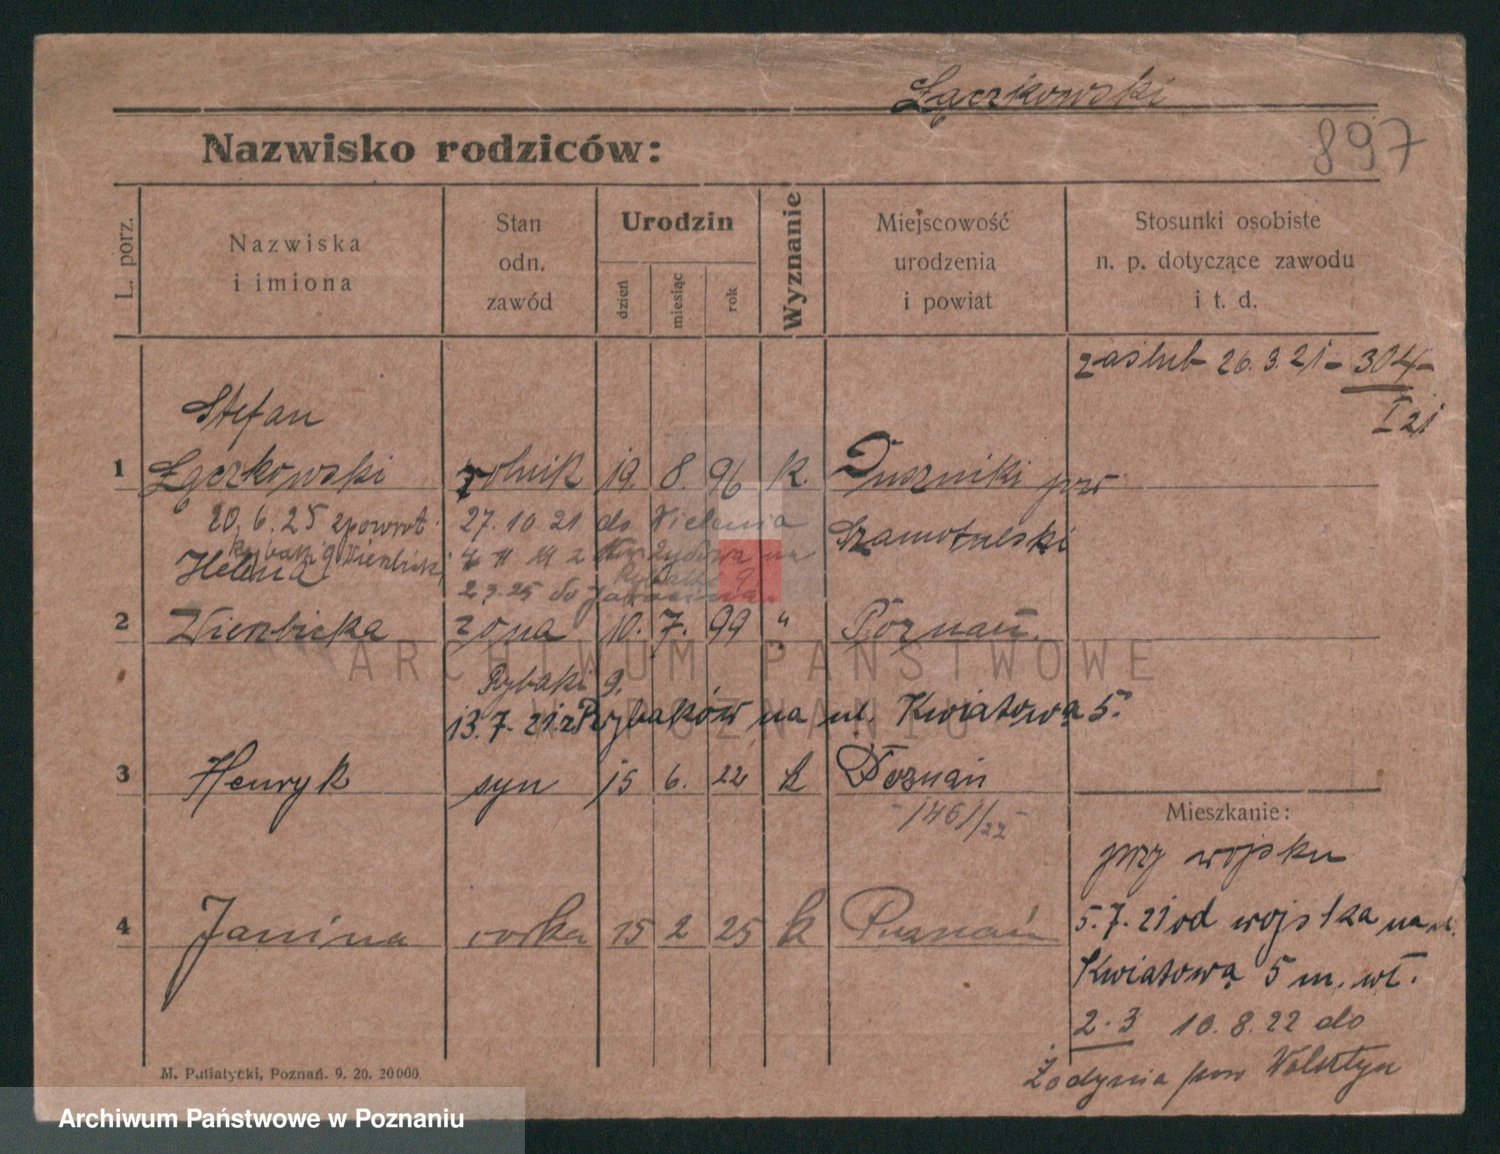 Łączkowski
Nazwisko rodziców:
897
L. porz.
Nazwiska
i imiona
Stan
odn.
zawód
Urodzin
dzień
miesiąc
rok
Wyznanie
Miejscowość
urodzenia
i powiat
Stosunki osobiste
n. p. dotyczące zawodu
i t. d.
zaślub 26.3.21 - 304 -
I 21
Stefan
1 Łączkowski rolnik 19. 8. 96 k. Duszniki pow
Szamotulski
20.6.25 zpowrot
27.10.21 do Wielenia
Rybaki 9
Helena
2.3.25 do
2 Wierzbicka żona 10. 7. 99 " Poznań.
Rybaki 9.
13.7.21 z Rybaków na ul. Kwiatową 5.
3 Henryk syn 15 6. 22 k Poznań
1461/22
4 Janina córka 15 2 25 k Poznań
Mieszkanie:
przy wojsku
5.7.21 od wojska na ul.
Kwiatową 5 m. wł.
2.3 10.8.22 do
Żodynia pow Wolsztyn
M. Putiatycki, Poznań. 9. 20. 20000
ARCHIWUM PAŃSTWOWE
W POZNANIU
Archiwum Państwowe w Poznaniu